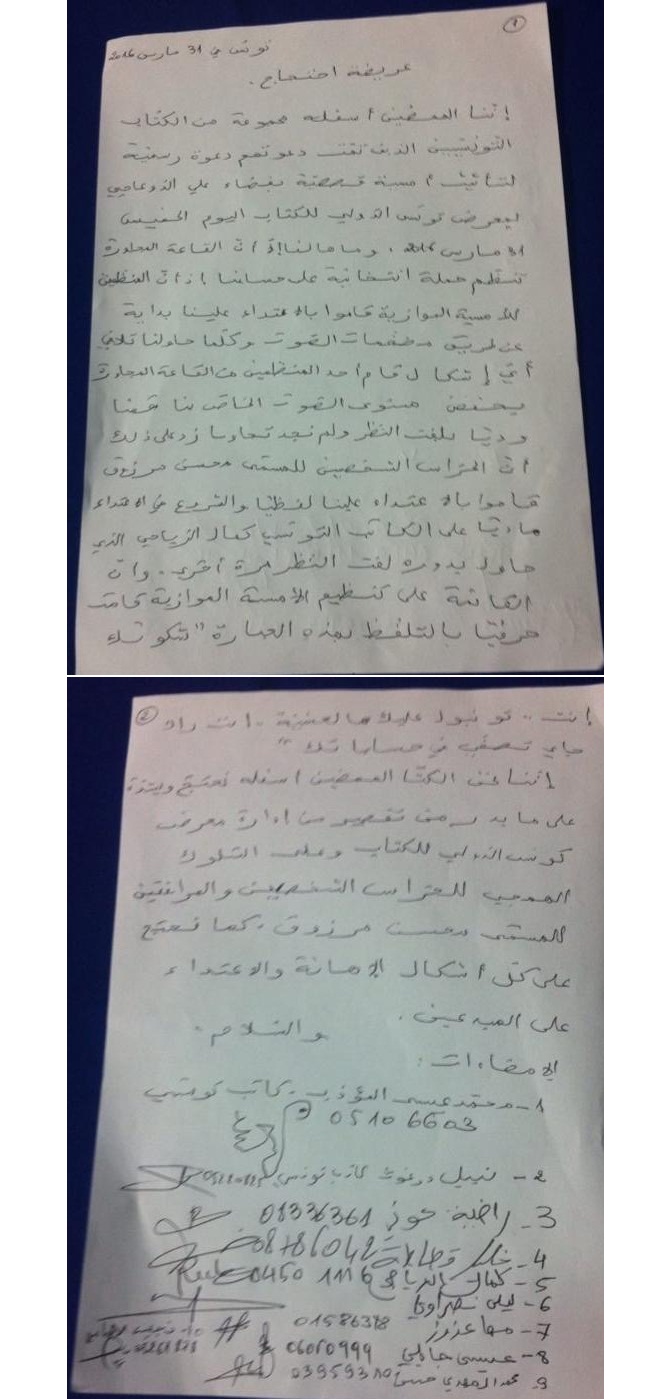 1
تونس في 31 مارس 2016
عريضة احتجاج.
إننا الممضين أسفله مجموعة من الكتاب
التونسيين الذين تمت دعوتهم دعوة رسمية
لتأثيث أمسية قصصية بفضاء علي الدوعاجي
بمعرض تونس الدولي للكتاب اليوم الخميس
31 مارس 2016. وما هالنا إلا أن القاعة المجاورة
تنظم حملة انتخابية على حسابنا إذ أن المنظمين
للأمسية الموازية قاموا بالاعتداء علينا بداية
عن طريق مضخمات الصوت وكلما حاولنا تلافي
أي إشكال قام أحد المنظمين من القاعة المجاورة
بخفض مستوى الصوت الخاص بنا قمنا
وديا بلفت النظر ولم نجد تجاوبا زد على ذلك
أن الحراس الشخصيين للمسمى محسن مرزوق
قاموا بالاعتداء علينا لفظيا والشروع في الاعتداء
ماديا على الكاتب التونسي كمال الرياحي الذي
حاول بدوره لفت النظر مرة أخرى. وأن
القائمة على تنظيم الأمسية الموازية قامت
حرفيا بالتلفظ بهذه العبارة "شكونك
2
إنت .. تو نبول عليك هالعشية. انت راك
جاي تصفي في حساباتك"
إننا نحن الكتاب الممضين أسفله نحتج وبشدة
على ما بدر من تقصير من إدارة معرض
تونس الدولي للكتاب وعلى السلوك
الهمجي للحراس الشخصيين والمرافقين
للمسمى محسن مرزوق. كما نحتج
على كل أشكال الإهانة والاعتداء
على المبدعين.
والسلام.
الإمضاءات:
1- محمد عيسى المؤدب. كاتب تونسي
05106603
2- نبيل درغوث كاتب تونسي
3- راضية 01336361
4-
5- كمال الرياحي 0450 1116
6- ليلى نصراوي
7- مها عزوز 01586378
8- عيسى جابلي 06050999
9 محمد المهدي 03959310